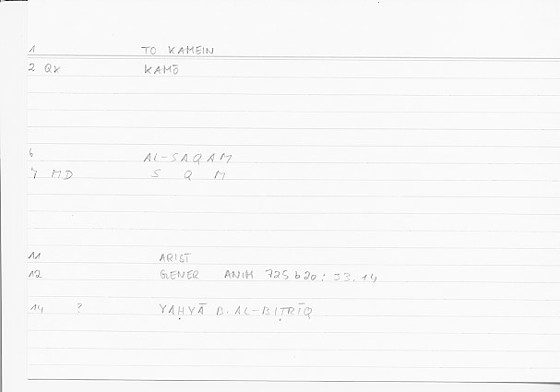 1 TO KAMEIN
2 QK KAMŌ
6 AL-SAQAM
7 MD S Q M
11 ARIST
12 GENER ANIM 725 b20 : 33.14
14 ? YAḤYĀ B. AL-BIṬRĪQ